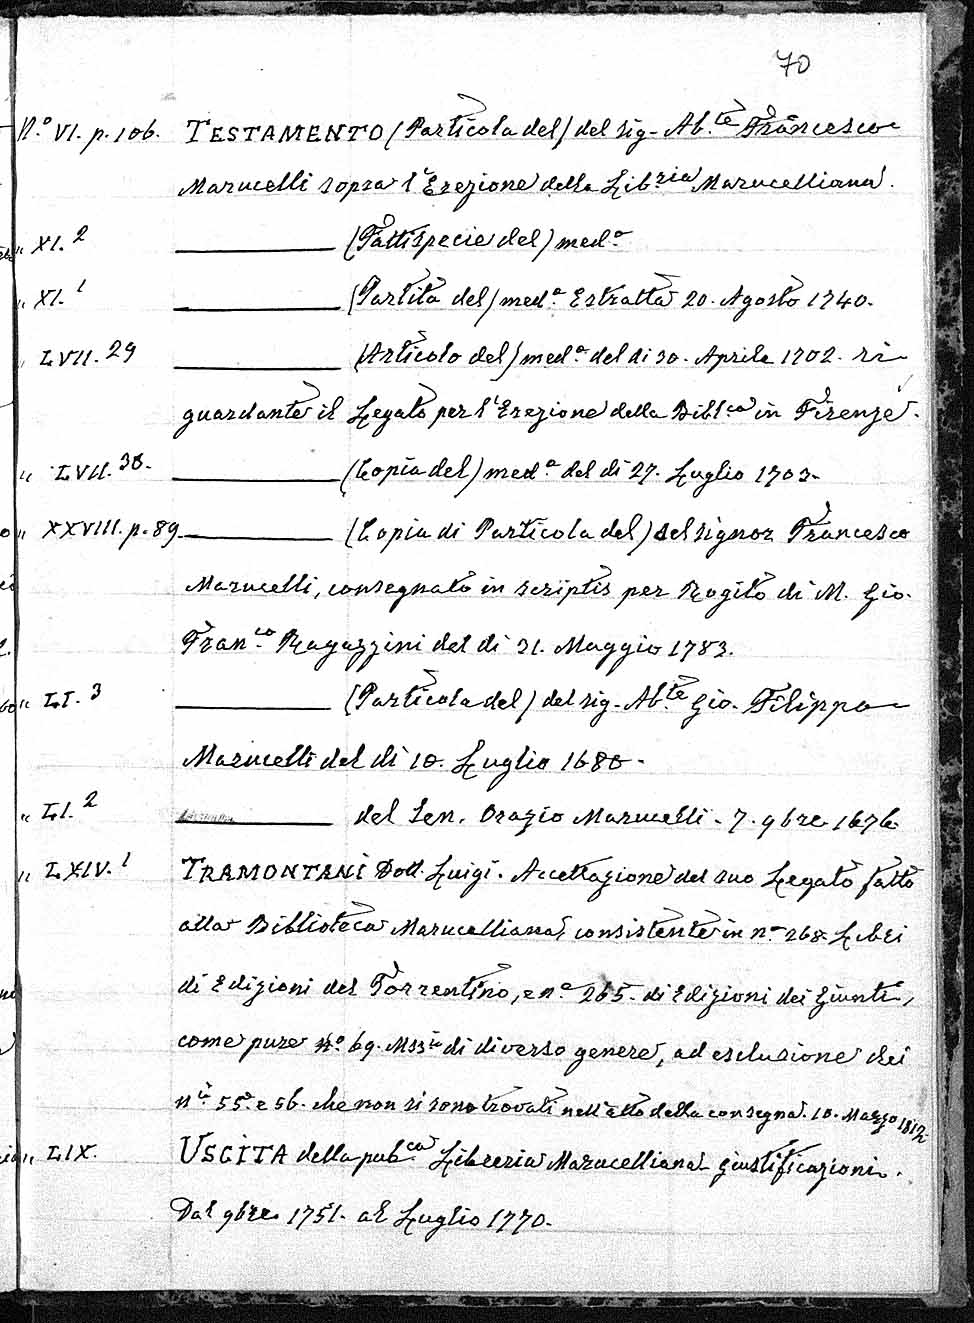 70
N.º VI. p. 106. TESTAMENTO (Particola del) del sig. Ab.te Francesco
Marucelli sopra l'Erezione della Lib.ria Marucelliana.
" XI. 2 ——— (Fattispecie del) med.º
" XI. 1 ——— (Partita del) med.º Estratta 20. Agosto 1740.
" LVII. 29 ——— (Articolo del) med.º del di 30. Aprile 1702. ri-
guardante il Legato per l'Erezione della Bibl.ca in Firenze.
" LVII. 30. ——— (Copia del) med.º del di 27. Luglio 1703.
" XXVIII. p. 89 ——— (Copia di Particola del) del signor Francesco
Marucelli, consegnato in scriptis per Rogito di M. Gio.
Fran.co Ragazzini del di 31. Maggio 1783.
" LI. 3 ——— (Particola del) del sig. Ab.te Gio. Filippo
Marucelli del di 10. Luglio 1680.
" LI. 2 ——— del Sen. Orazio Marucelli. 7. 9bre 1676
" LXIV. 1 TRAMONTANI Dott. Luigi. Accettazione del suo Legato fatto
alla Biblioteca Marucelliana, consistente in n.º 268. Libri
di Edizioni del Torrentino, e n.º 265. di Edizioni dei Giunti,
come pure n.º 69. Mss.ti di diverso genere, ad esclusione dei
n.ri 55. e 56. che non si sono trovati nell'atto della consegna. 10. Marzo 1812.
" LIX. USCITA della pub.ca Libreria Marucelliana giustificazioni.
Dal 9bre 1751. al Luglio 1770.